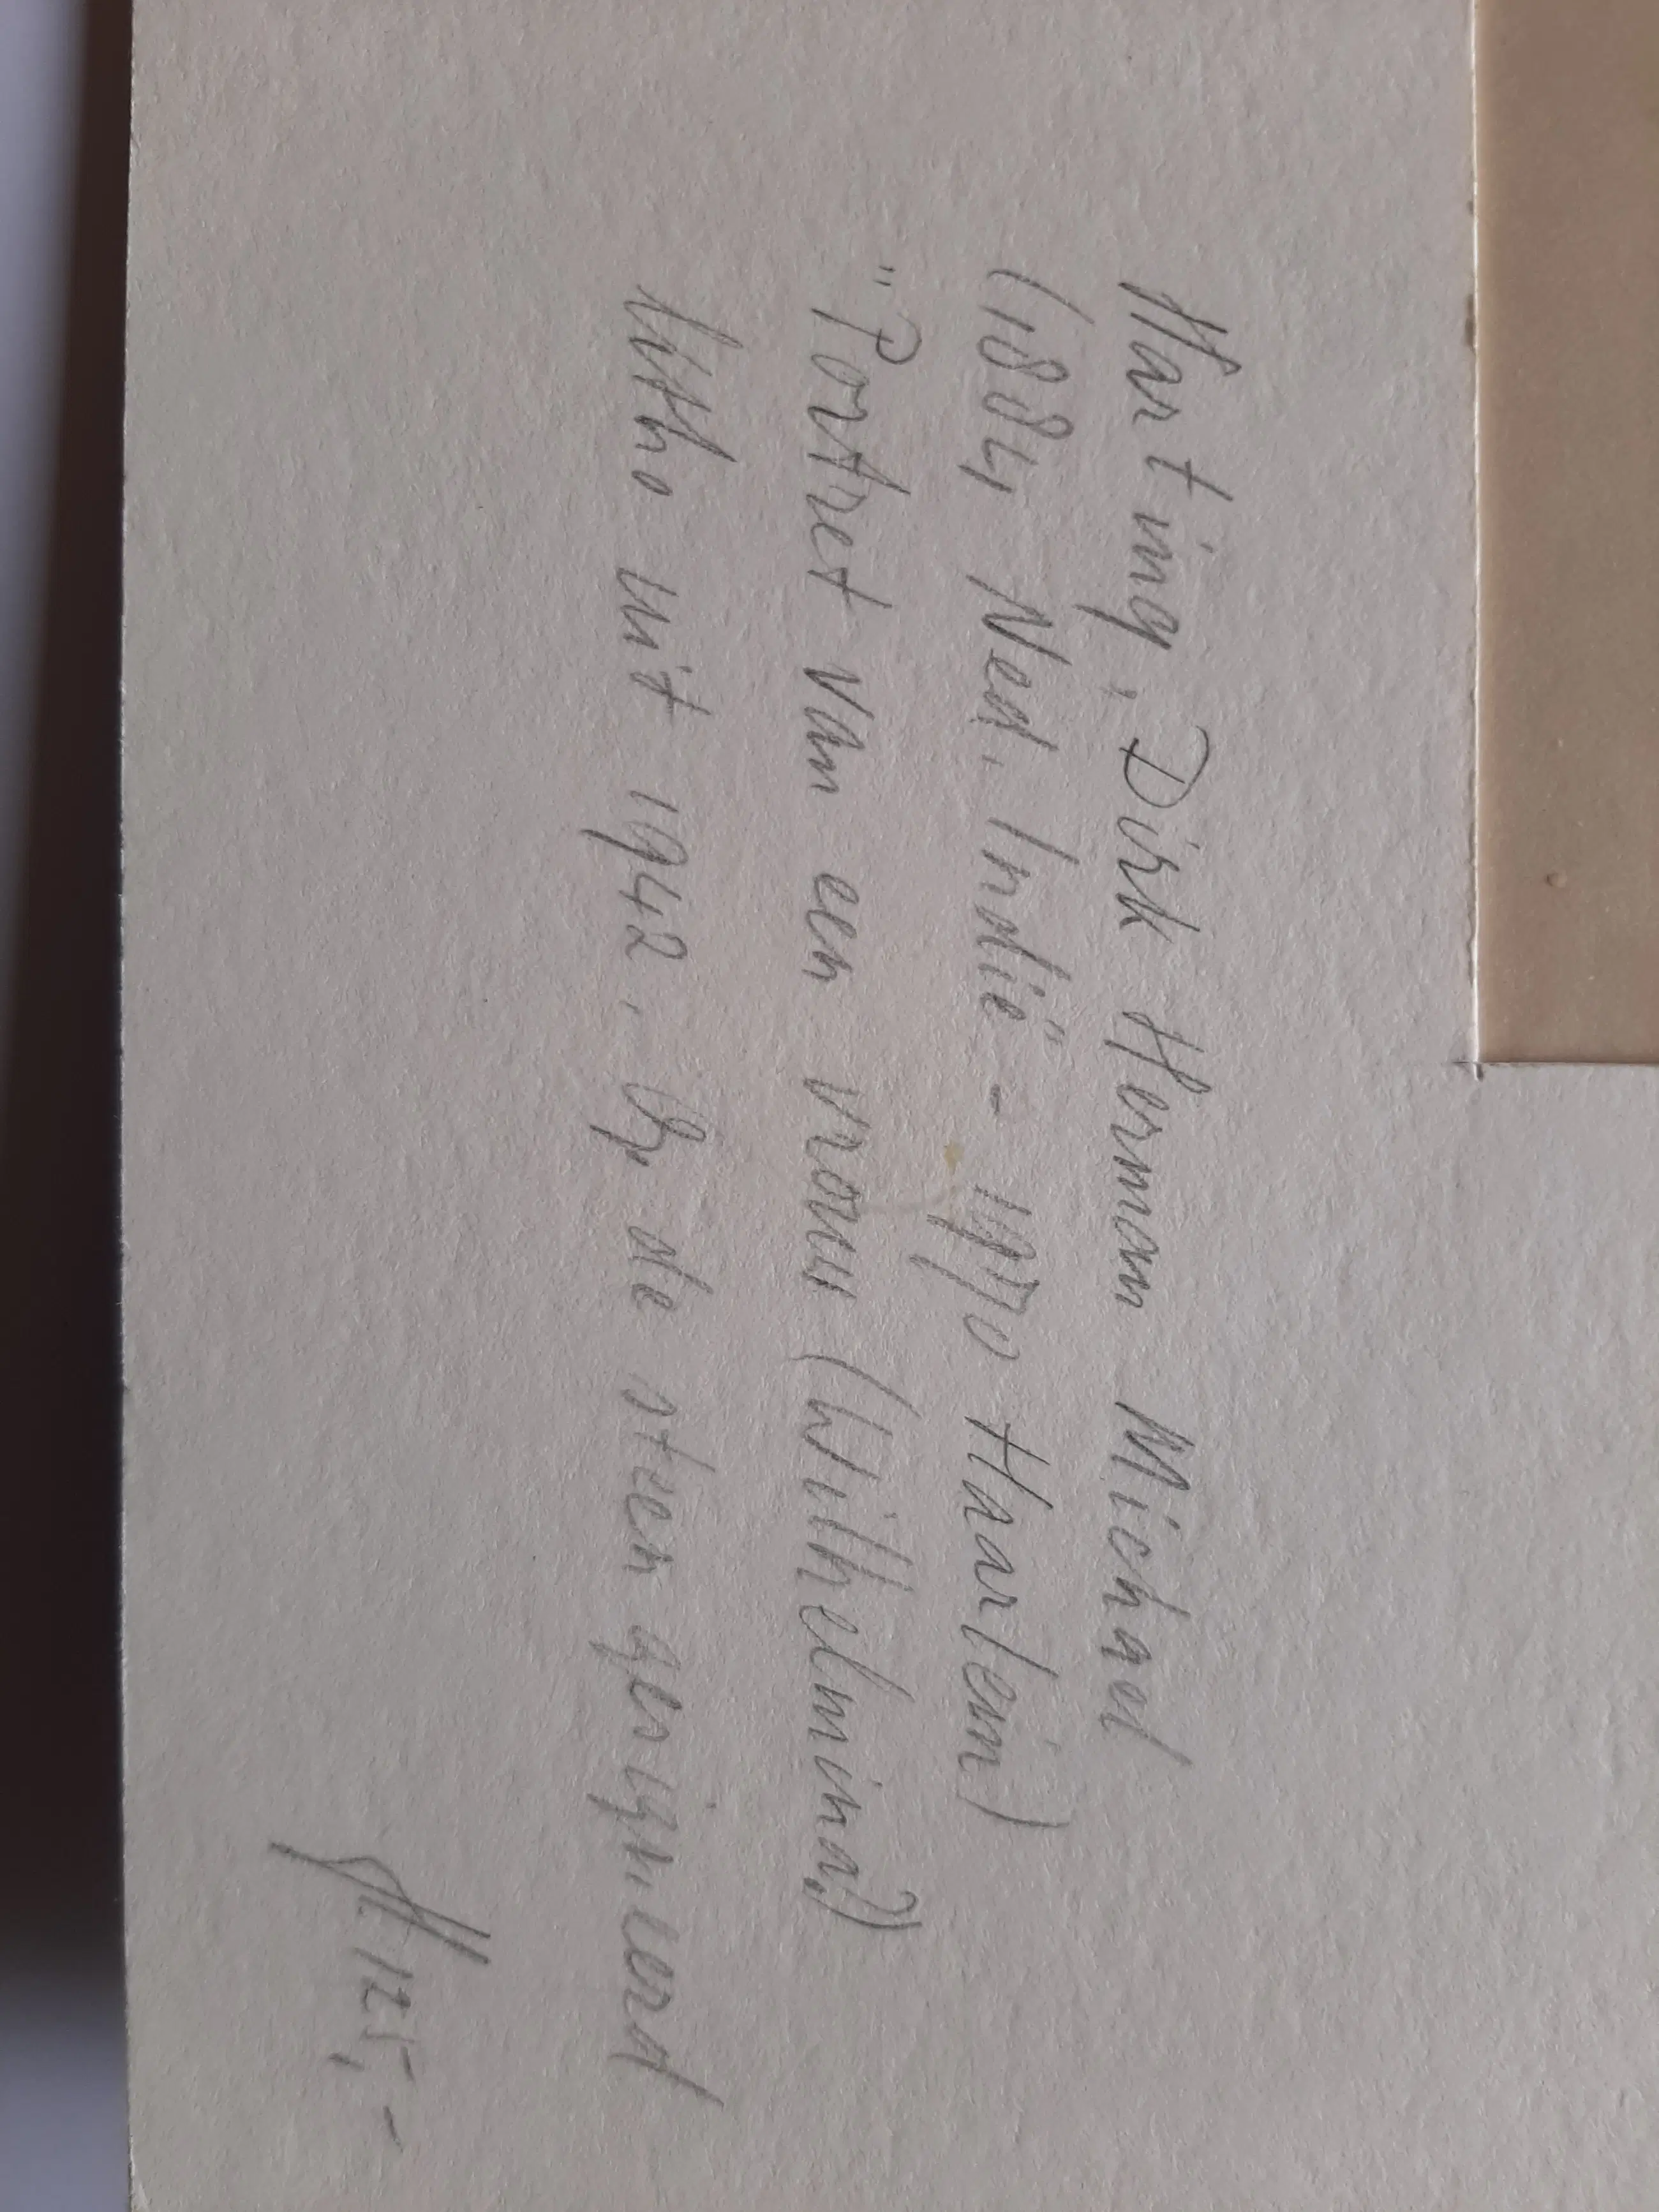 Harting, Dirk Herman Michael
(1884 Ned. Indië - 1970 Haarlem)
"Portret van een vrouw (Wilhelmina?)
litho uit 1942. Op de steen gesigneerd
ƒ 125,-